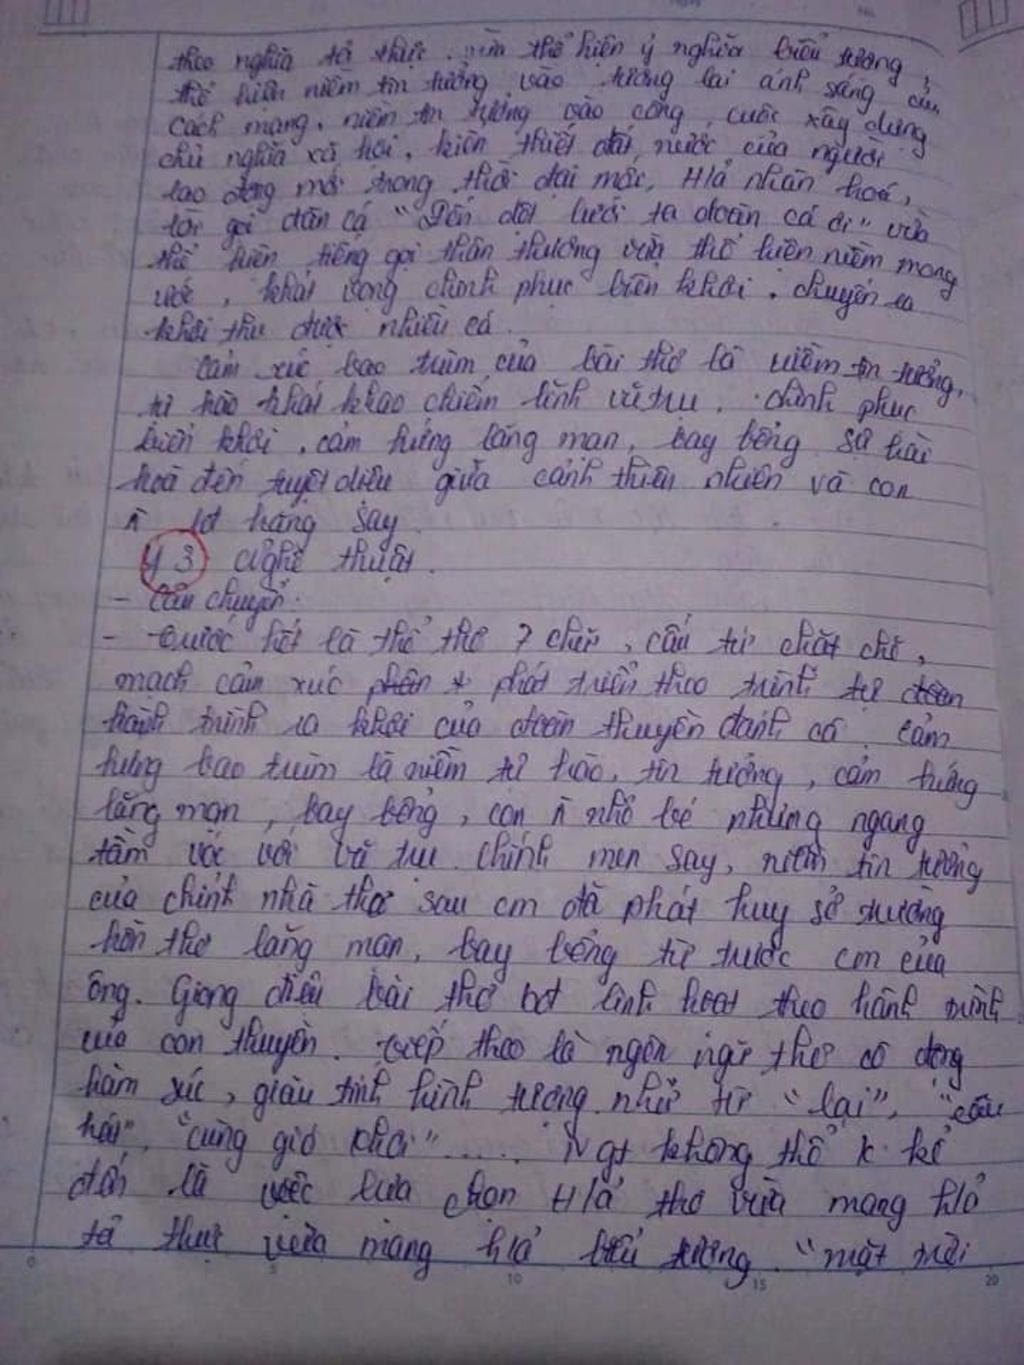 theo nghĩa tả thực. vừa thể hiện ý nghĩa biểu tượng,
thể hiện niềm tin tưởng vào tương lai ánh sáng của
cách mạng, niềm tin tưởng vào công cuộc xây dựng
chủ nghĩa xã hội, kiến thiết đất nước của người
lao động mới trong thời đại mới, H/ả nhân hoá,
lời gọi đàn cá "Đến dệt lưới ta đoàn cá ơi" vừa
thể hiện tiếng gọi thân thương vừa thể hiện niềm mong
ước, khát vọng chinh phục biển khơi. chuyến ra
khơi thu được nhiều cá.
Cảm xúc bao trùm của bài thơ là niềm tin tưởng,
tự hào khát khao chiếm lĩnh vũ trụ, chinh phục
biển khơi, cảm hứng lãng mạn, bay bổng sự hài
hoà đến tuyệt diệu giữa cảnh thiên nhiên và con
ñ lđ hăng say
Ý 3 Nghệ thuật.
- Câu chuyển.
- Trước hết là thể thơ 7 chữ, cấu tứ chặt chẽ,
mạch cảm xúc phát triển theo trình tự
hành trình ra khơi của đoàn thuyền đánh cá. Cảm
hứng bao trùm là niềm tự hào, tin tưởng, cảm hứng
lãng mạn, bay bổng, con ñ nhỏ bé nhưng ngang
tầm vóc với vũ trụ. Chính men say, niềm tin tưởng
của chính nhà thơ sau cm đã phát huy sở trường
hồn thơ lãng mạn, bay bổng từ trước cm của
ông. Giọng điệu bài thơ bđ linh hoạt theo hành trình
của con thuyền. Tiếp theo là ngôn ngữ thơ cô đọng
hàm xúc, giàu tính hình tượng như từ "lại", "câu
hát", "cùng gió khơi"...... Ngt không thể k kể
đến là việc lựa chọn H/ả thơ vừa mang h/ả
tả thực vừa mang h/ả biểu tượng. "mặt trời